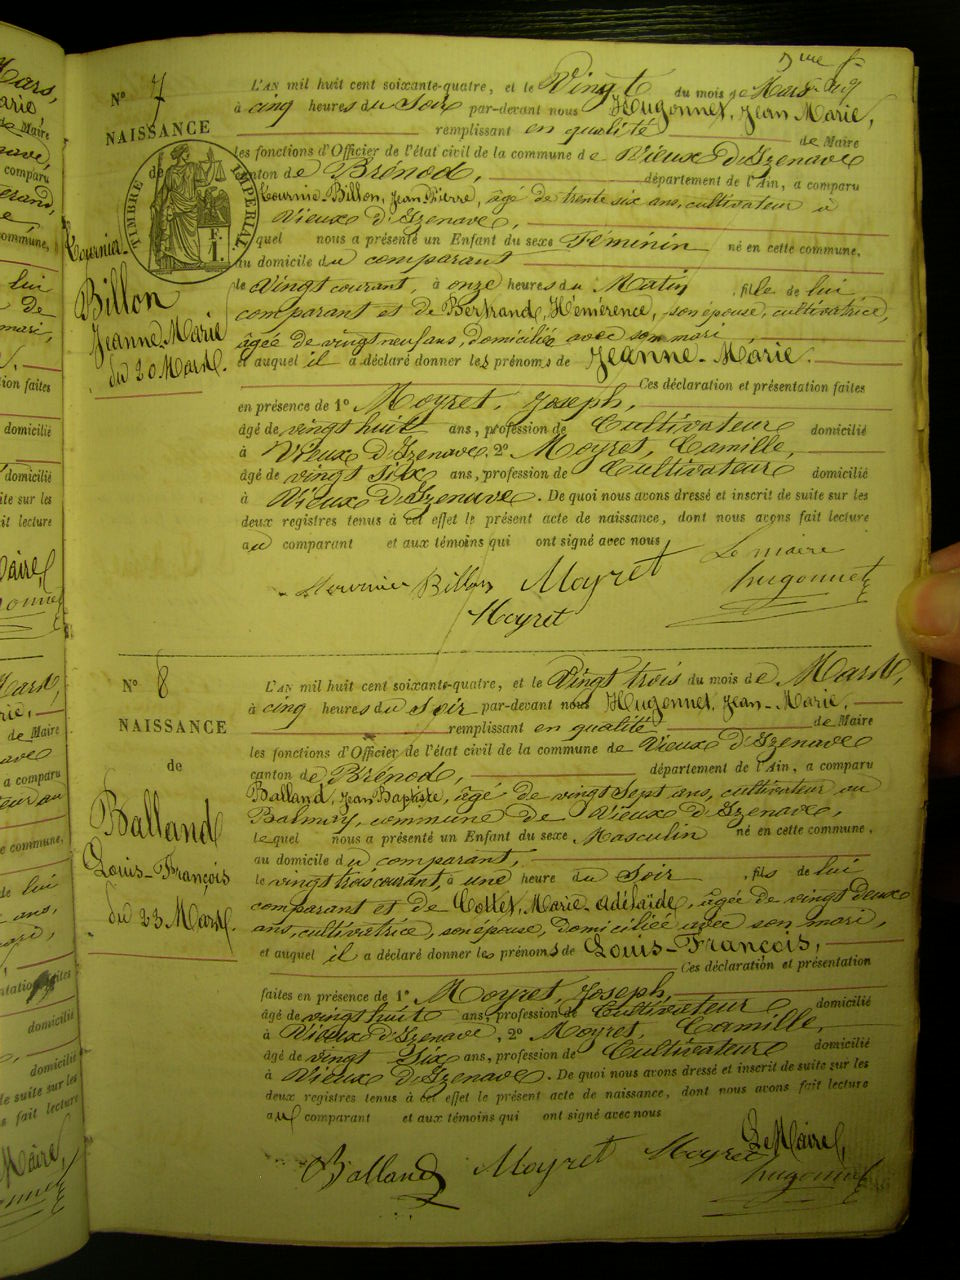 5me f.
N° 7
NAISSANCE
de
TIMBRE IMPÉRIAL
F.
1.
Tournier-
Billon
Jeanne-Marie
du 20 Mars.
L'AN mil huit cent soixante-quatre, et le Vingt du mois de Mars
à cinq heures du Soir par-devant nous Hugonnet, Jean Marie,
remplissant en qualité de Maire
les fonctions d'Officier de l'état civil de la commune de Vieux d'Izenave
canton de Brénod, département de l'Ain, a comparu
Tournier Billon, Jean Pierre, âgé de trente six ans, cultivateur à
Vieux d'Izenave,
lequel nous a présenté un Enfant du sexe Féminin né en cette commune,
au domicile du comparant
le Vingt courant, à onze heures du Matin, fille de lui
comparant et de Bertrand, Hémérence, son épouse, cultivatrice,
âgée de vingt neuf ans, domiciliée avec son mari
et auquel il a déclaré donner les prénoms de Jeanne-Marie.
Ces déclaration et présentation faites
en présence de 1° Moyret, Joseph,
âgé de vingt huit ans, profession de Cultivateur domicilié
à Vieux d'Izenave, 2° Moyret, Camille,
âgé de vingt six ans, profession de Cultivateur domicilié
à Vieux d'Izenave. De quoi nous avons dressé et inscrit de suite sur les
deux registres tenus à cet effet le présent acte de naissance, dont nous avons fait lecture
au comparant et aux témoins qui ont signé avec nous
Le maire
Tournier Billon Moyret hugonnet
Moyret
N° 8
NAISSANCE
de
Balland
Louis-François
du 23 Mars.
L'AN mil huit cent soixante-quatre, et le Vingt trois du mois de Mars,
à cinq heures du Soir par-devant nous Hugonnet, Jean-Marie,
remplissant en qualité de Maire
les fonctions d'Officier de l'état civil de la commune de Vieux d'Izenave
canton de Brénod, département de l'Ain, a comparu
Balland, Jean Baptiste, âgé de vingt Sept ans, cultivateur au
Balmay, commune de Vieux d'Izenave,
lequel nous a présenté un Enfant du sexe Masculin né en cette commune,
au domicile du comparant,
le vingt trois courant, à une heure du Soir, fils de lui
comparant et de Cottet, Marie-Adélaïde, âgée de vingt deux
ans, cultivatrice, son épouse, domiciliée avec son mari,
et auquel il a déclaré donner les prénoms de Louis-François,
Ces déclaration et présentation
faites en présence de 1° Moyret, Joseph,
âgé de vingt huit ans, profession de Cultivateur domicilié
à Vieux d'Izenave, 2° Moyret, Camille,
âgé de vingt Six ans, profession de Cultivateur domicilié
à Vieux d'Izenave. De quoi nous avons dressé et inscrit de suite sur les
deux registres tenus à cet effet le présent acte de naissance, dont nous avons fait lecture
au comparant et aux témoins qui ont signé avec nous
Le Maire,
Balland Moyret Moyret hugonnet